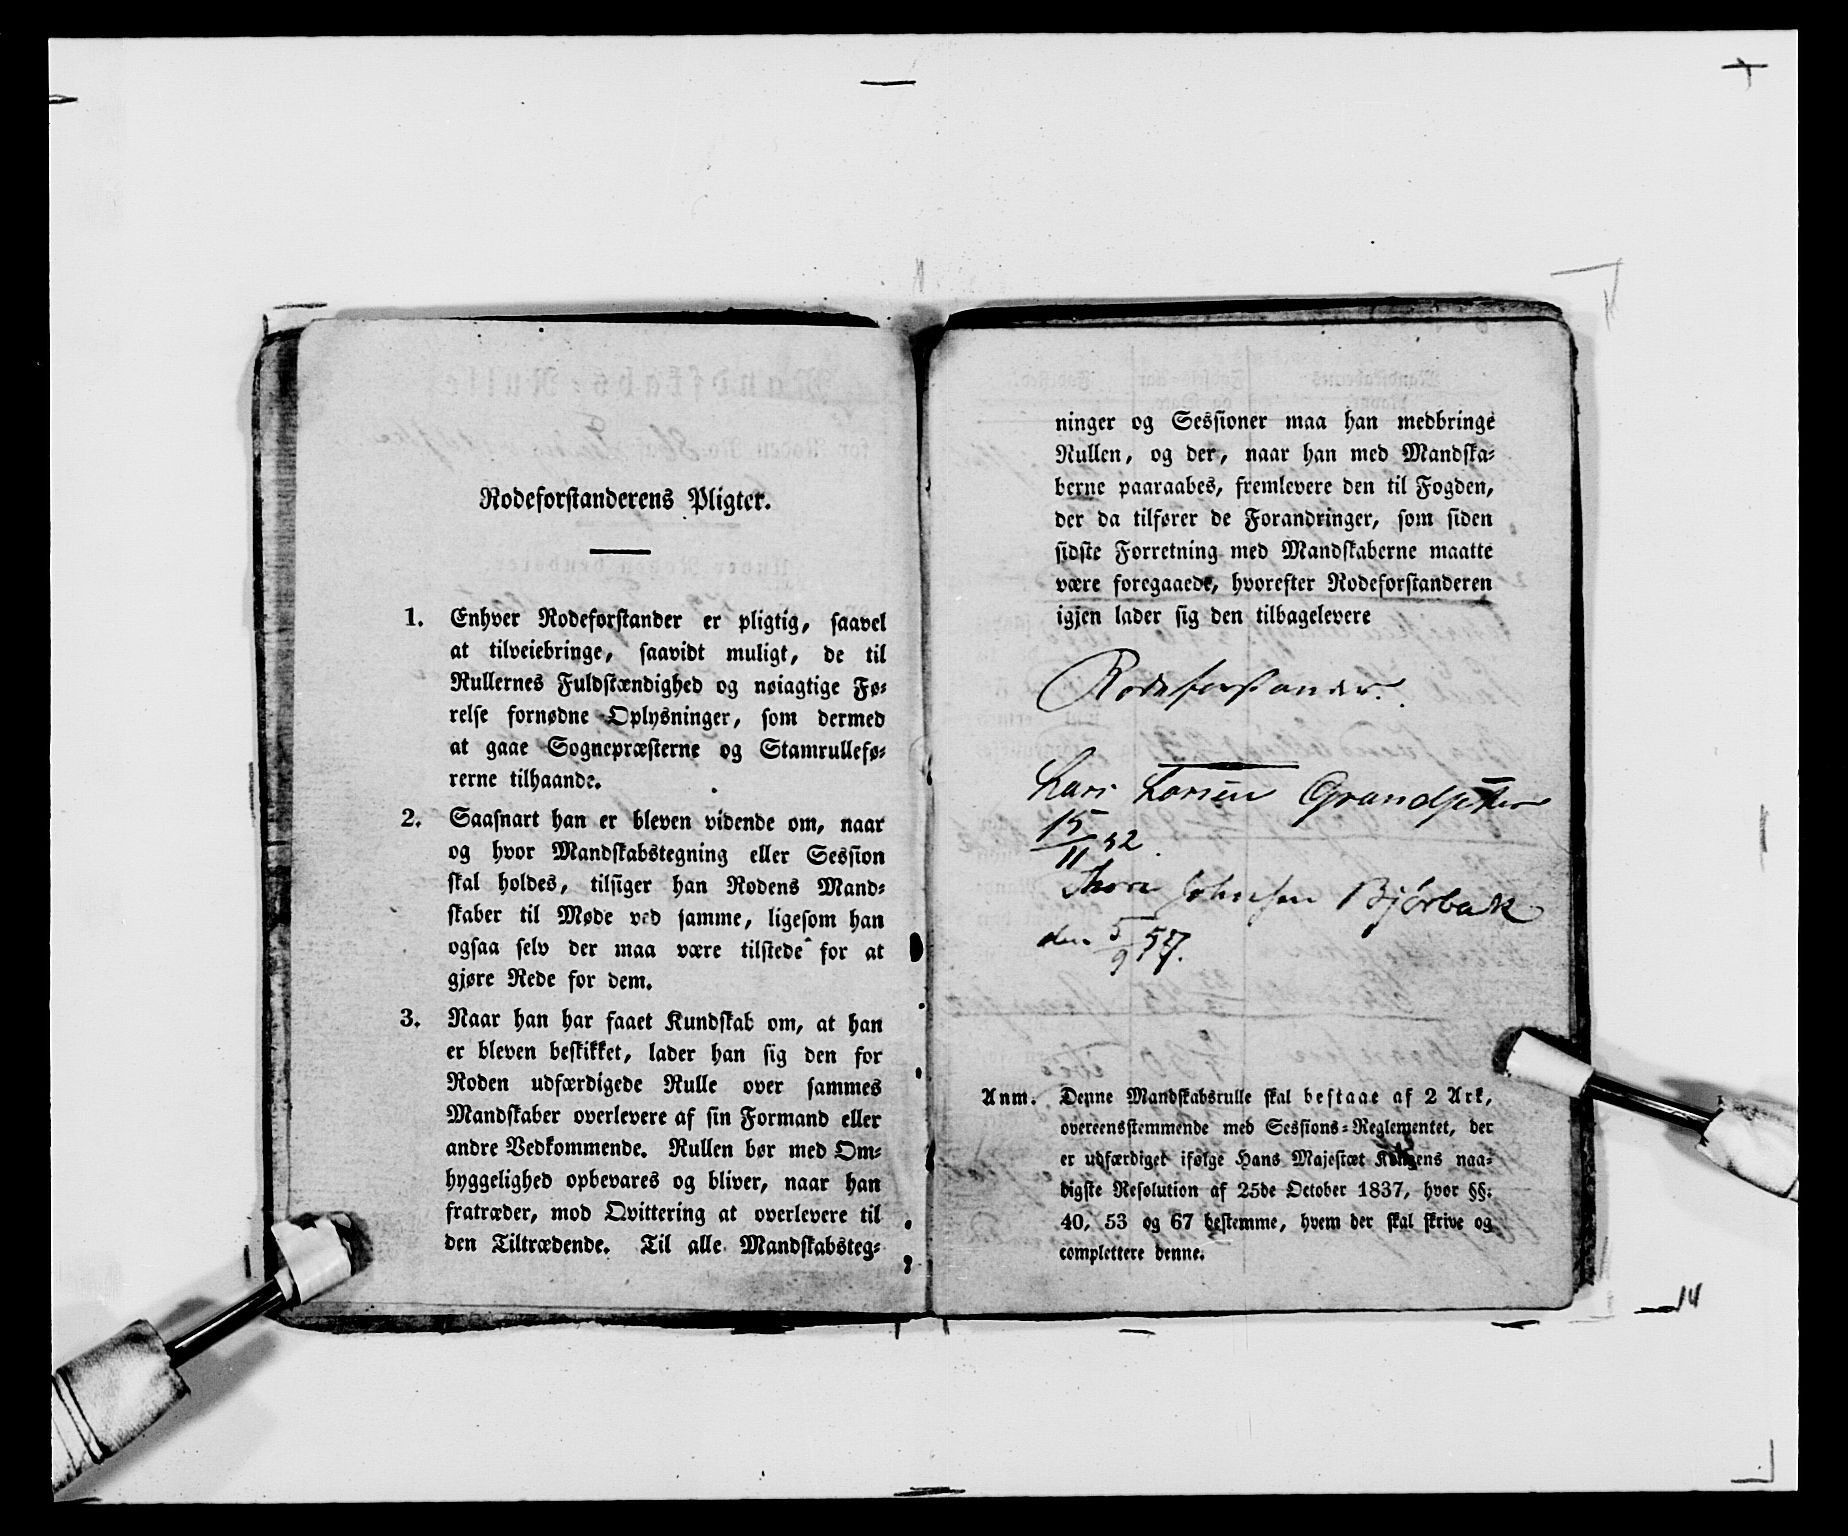 Rodeforstanderens Pligter.
1. Enhver Rodeforstander er pligtig, saavel
at tilveiebringe, saavidt muligt, de til
Rullernes Fuldstændighed og nøiagtige Fø-
relse fornødne Oplysninger, som dermed
at gaae Sognepræsterne og Stamrullefø-
rerne tilhaande.
2. Saasnart han er bleven vidende om, naar
og hvor Mandskabstegning eller Session
skal holdes, tilsiger han Rodens Mand-
skaber til Møde ved samme, ligesom han
ogsaa selv der maa være tilstede for at
gjøre Rede for dem.
3. Naar han har faaet Kundskab om, at han
er bleven beskikket, lader han sig den for
Roden udfærdigede Rulle over sammes
Mandskaber overlevere af sin Formand eller
andre Vedkommende. Rullen bør med Om-
hyggelighed opbevares og bliver, naar han
fratræder, mod Qvittering at overlevere til
den Tiltrædende. Til alle Mandskabsteg-
ninger og Sessioner maa han medbringe
Rullen, og der, naar han med Mandska-
berne paaraabes, fremlevere den til Fogden,
der da tilfører de Forandringer, som siden
sidste Forretning med Mandskaberne maatte
være foregaaede, hvorefter Rodeforstanderen
igjen lader sig den tilbagelevere
Rodeforstander.
Lars Larsen
15/11 52.
Thore Johnsen Bjørbæk
den 5/9 57.
Anm. Denne Mandskabsrulle skal bestaae af 2 Ark,
overeensstemmende med Sessions-Reglementet, der
er udfærdiget ifølge Hans Majestæt Kongens naa-
digste Resolution af 25de October 1837, hvor §§.
40, 53 og 67 bestemme, hvem der skal skrive og
complettere denne.
14